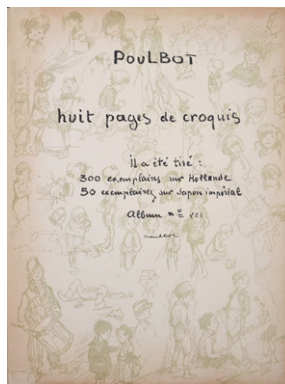 POULBOT
huit pages de croquis
il a été tiré :
300 exemplaires sur Hollande
50 exemplaires sur Japon impérial
Album n°